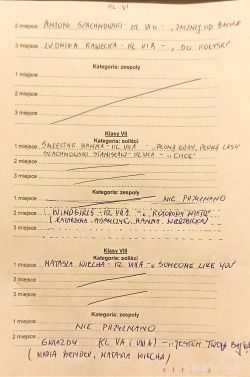 KL VI
2 miejsce ANTONI SZACHNOWSKI - KL VI a - "ZACZNIJ OD BACHA"
3 miejsce LUDMIŁA KAWECKA - KL VI B - "DO KOŁYSKI"
Kategoria: zespoły
1 miejsce
2 miejsce
3 miejsce
Klasy VII
Kategoria: soliści
1 miejsce HANNA - KL VII A - "PŁONĄ GÓRY, PŁONĄ LASY"
STANISŁAW - KL VII A - "CHCĘ"
2 miejsce
3 miejsce
Kategoria: zespoły
1 miejsce NIE PRZYZNANO
2 miejsce WINDGIRLS - KL VII B - "KOLOROWY WIATR"
ADAMCZYK, HANNA
3 miejsce
Klasy VIII
Kategoria: soliści
1 miejsce NATASZA WIECHA - KL VIII A - "SOMEONE LIKE YOU"
2 miejsce
3 miejsce
Kategoria: zespoły
1 miejsce NIE PRZYZNANO
2 miejsce GWIAZDY (KL. VA i VIII A) - "JESTEM TWOJĄ BAJKĄ"
3 miejsce (NADIA BENDER, NATASZA WIECHA)